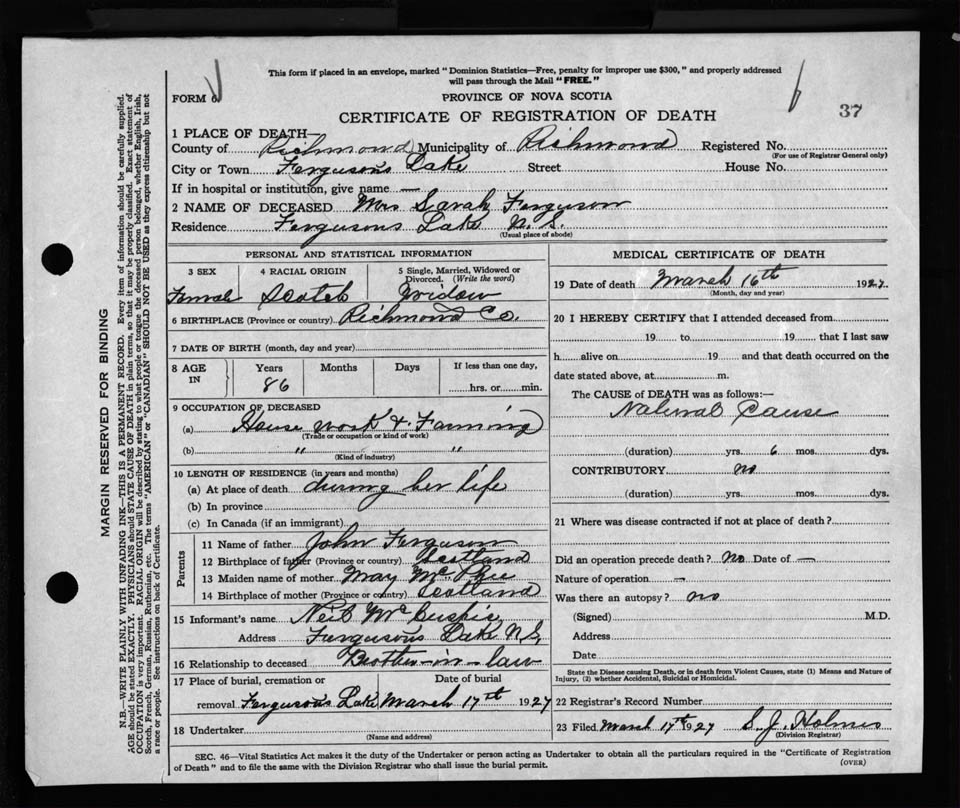 This form if placed in an envelope, marked "Dominion Statistics—Free, penalty for improper use $300," and properly addressed
will pass through the Mail "FREE."
FORM 6
PROVINCE OF NOVA SCOTIA
37
CERTIFICATE OF REGISTRATION OF DEATH
1 PLACE OF DEATH—
County of Richmond Municipality of Richmond Registered No.
(For use of Registrar General only)
City or Town Fergusons Lake Street House No.
If in hospital or institution, give name —
2 NAME OF DECEASED Mrs Sarah Ferguson
Residence Fergusons Lake N. S.
(Usual place of abode)
PERSONAL AND STATISTICAL INFORMATION
3 SEX 4 RACIAL ORIGIN 5 Single, Married, Widowed or
Divorced. (Write the word)
Female Scotch Widow
6 BIRTHPLACE (Province or country) Richmond Co.
7 DATE OF BIRTH (month, day and year)
8 AGE Years Months Days If less than one day,
IN 86 hrs. or min.
9 OCCUPATION OF DECEASED
(a) House work & Farming
(Trade or occupation or kind of work)
(b) " "
(Kind of industry)
10 LENGTH OF RESIDENCE (in years and months)
(a) At place of death during her life
(b) In province
(c) In Canada (if an immigrant)
Parents
11 Name of father John Ferguson
12 Birthplace of father (Province or country) Scotland
13 Maiden name of mother May McPhee
14 Birthplace of mother (Province or country) Scotland
15 Informant's name Neil Mc
Address Fergusons Lake N.S,
16 Relationship to deceased Brother-in-law
17 Place of burial, cremation or Date of burial
removal Fergusons Lake March 17th 1927
18 Undertaker
(Name and address)
MEDICAL CERTIFICATE OF DEATH
19 Date of death March 16th 1927
(Month, day and year)
20 I HEREBY CERTIFY that I attended deceased from
19 to 19 that I last saw
h alive on 19 and that death occurred on the
date stated above, at m.
The CAUSE of DEATH was as follows:—
Natural Cause
(duration) yrs. 6 mos. dys.
CONTRIBUTORY no
(duration) yrs. mos. dys.
21 Where was disease contracted if not at place of death?
Did an operation precede death? no Date of —
Nature of operation —
Was there an autopsy? no
(Signed) M.D.
Address
Date
State the Disease causing Death, or in death from Violent Causes, state (1) Means and Nature of
Injury, (2) whether Accidental, Suicidal or Homicidal.
22 Registrar's Record Number
23 Filed March 17th 1927 S. J. Holmes
(Division Registrar)
SEC. 46—Vital Statistics Act makes it the duty of the Undertaker or person acting as Undertaker to obtain all the particulars required in the "Certificate of Registration
of Death" and to file the same with the Division Registrar who shall issue the burial permit.
(OVER)
MARGIN RESERVED FOR BINDING
N.B.—WRITE PLAINLY WITH UNFADING INK—THIS IS A PERMANENT RECORD. Every item of information should be carefully supplied.
AGE should be stated EXACTLY. PHYSICIANS should STATE CAUSE OF DEATH in plain terms, so that it may be properly classified. Exact statement of
OCCUPATION is very important. RACIAL ORIGIN will be described by stating to what people or tongue the deceased person belonged, whether English, Irish,
Scotch, French, German, Russian, Ruthenian, etc. The terms "AMERICAN" or "CANADIAN" SHOULD NOT BE USED as they express citizenship but not
a race or people. See instructions on back of Certificate.